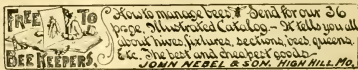 FREE TO
BEE KEEPERS.
How to manage bees. Send for our 36
page, Illustrated Catalog.- It tells you all
about hives, fixtures, sections, bees, queens,
Etc. The best and cheapest goods.-
JOHN NEBEL & SON, HIGH HILL, MO.